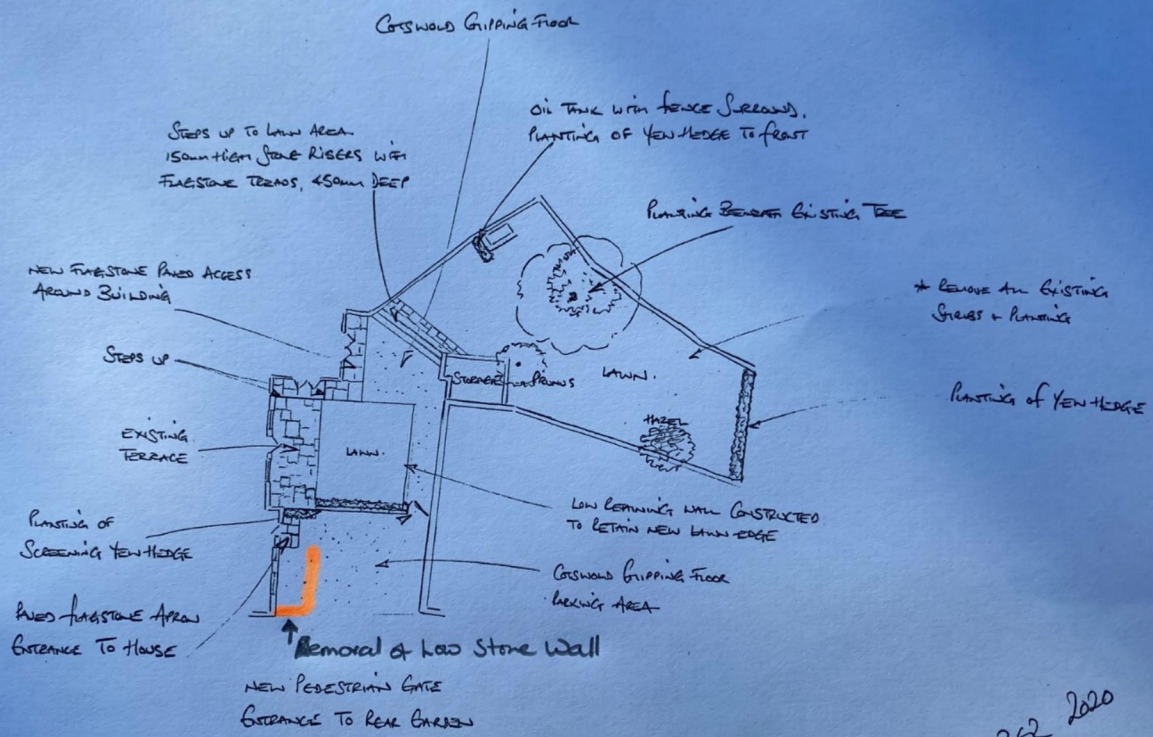 COTSWOLD CHIPPING FLOOR
OIL TANK WITH FENCE SURROUND,
PLANTING OF YEW HEDGE TO FRONT
STEPS UP TO LAWN AREA
150mm HIGH STONE RISERS WITH
FLAGSTONE TREADS, 450mm DEEP
PLANTING BENEATH EXISTING TREE
NEW FLAGSTONE PAVED ACCESS
AROUND BUILDING
* REMOVE ALL EXISTING
SHRUBS + PLANTING
STEPS UP
STORAGE
PRUNUS
LAWN.
PLANTING OF YEW HEDGE
HAZEL
EXISTING
TERRACE
LAWN.
LOW RETAINING WALL CONSTRUCTED
TO RETAIN NEW LAWN EDGE
PLANTING OF
SCREENING YEW HEDGE
COTSWOLD CHIPPING FLOOR
PARKING AREA
PAVED FLAGSTONE APRON
ENTRANCE TO HOUSE
Removal of Low Stone Wall
NEW PEDESTRIAN GATE
ENTRANCE TO REAR GARDEN
2020